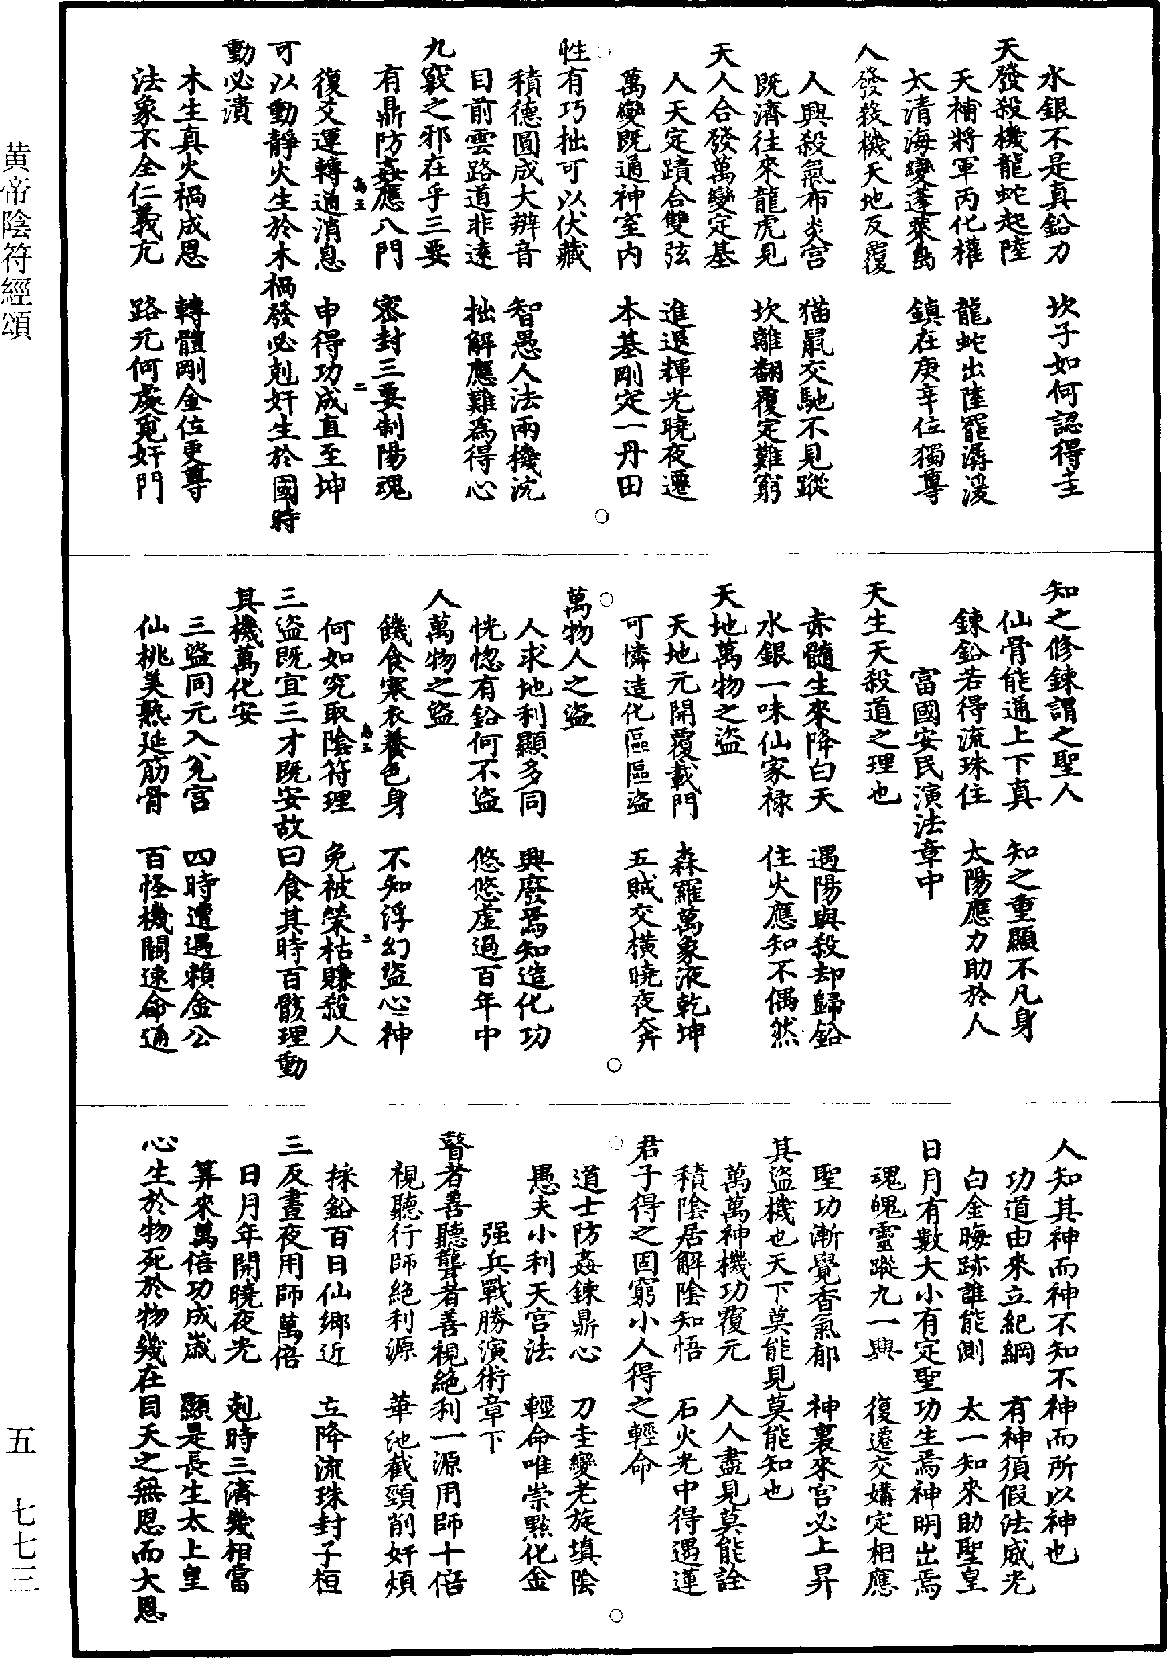 黃帝陰符經頌
水銀不是真鉛力　坎子如何認得主
天發殺機龍蛇起陸
天補將軍丙化權　龍蛇出陸罷潺湲
太清海變蓬萊島　鎮在庚辛位獨尊
人發殺機天地反覆
人興殺氣布炎宮　猫鼠交馳不見蹤
既濟往來龍虎見　坎離翻覆定難窮
天人合發萬變定基
人天定蹟合雙弦　進退輝光曉夜遷
萬變既通神室內　本基剛定一丹田
性有巧拙可以伏藏
積德圓成大辨音　智愚人法兩機沈
目前雲路道非遠　拙解應難為得心
九竅之邪在乎三要
有鼎防姦應八門　密封三要制陽魂
復爻運轉過消息　申得功成直至坤
可以動靜火生於木禍發必剋奸生於國時
動必潰
木生真火禍成恩　轉體剛金位更尊
法象不全仁義亢　路元何處覓奸門
知之修鍊謂之聖人
仙骨能通上下真　知之重顯不凡身
鍊鉛若得流珠住　太陽應力助於人
富國安民演法章中
天生天殺道之理也
赤髓生來降白天　遇陽與殺却歸鉛
水銀一味仙家祿　住火應知不偶然
天地萬物之盜
天地元開覆載門　森羅萬象液乾坤
可憐造化區區盜　五賊交橫曉夜奔
萬物人之盜
人求地利顯多同　興廢焉知造化功
恍惚有鉛何不盜　悠悠虛過百年中
人萬物之盜
饑食寒衣養色身　不知浮幻盜心神
何如究取陰符理　免被榮枯賺殺人
三盜既宜三才既安故曰食其時百骸理動
其機萬化安
三盜同元入兊宮　四時遭遇賴金公
仙桃美熟延筋骨　百怪機關速命通
人知其神而神不知不神而所以神也
功道由來立紀綱　有神須假法威光
白金晦跡誰能測　太一知來助聖皇
日月有數大小有定聖功生焉神明出焉
魂魄靈蹤九一興　復遷交媾定相應
聖功漸覺香氣郁　神裏來宮必上昇
其盜機也天下莫能見莫能知也
萬萬神機功覆元　人人盡見莫能詮
積陰居解陰知悟　石火光中得遇蓮
君子得之固窮小人得之輕命
道士防姦鍊鼎心　刀圭變老旋填陰
愚夫小利天宮法　輕命唯崇點化金
强兵戰勝演術章下
瞽者善聽聾者善視絕利一源用師十倍
視聽行師絕利源　華池截頸削奸煩
採鉛百日仙鄉近　立降流珠封子桓
三反晝夜用師萬倍
日月年開曉夜光　剋時三濟幾相當
筭來萬倍功成歲　顯是長生太上皇
心生於物死於物幾在目天之無恩而大恩
五　七七三